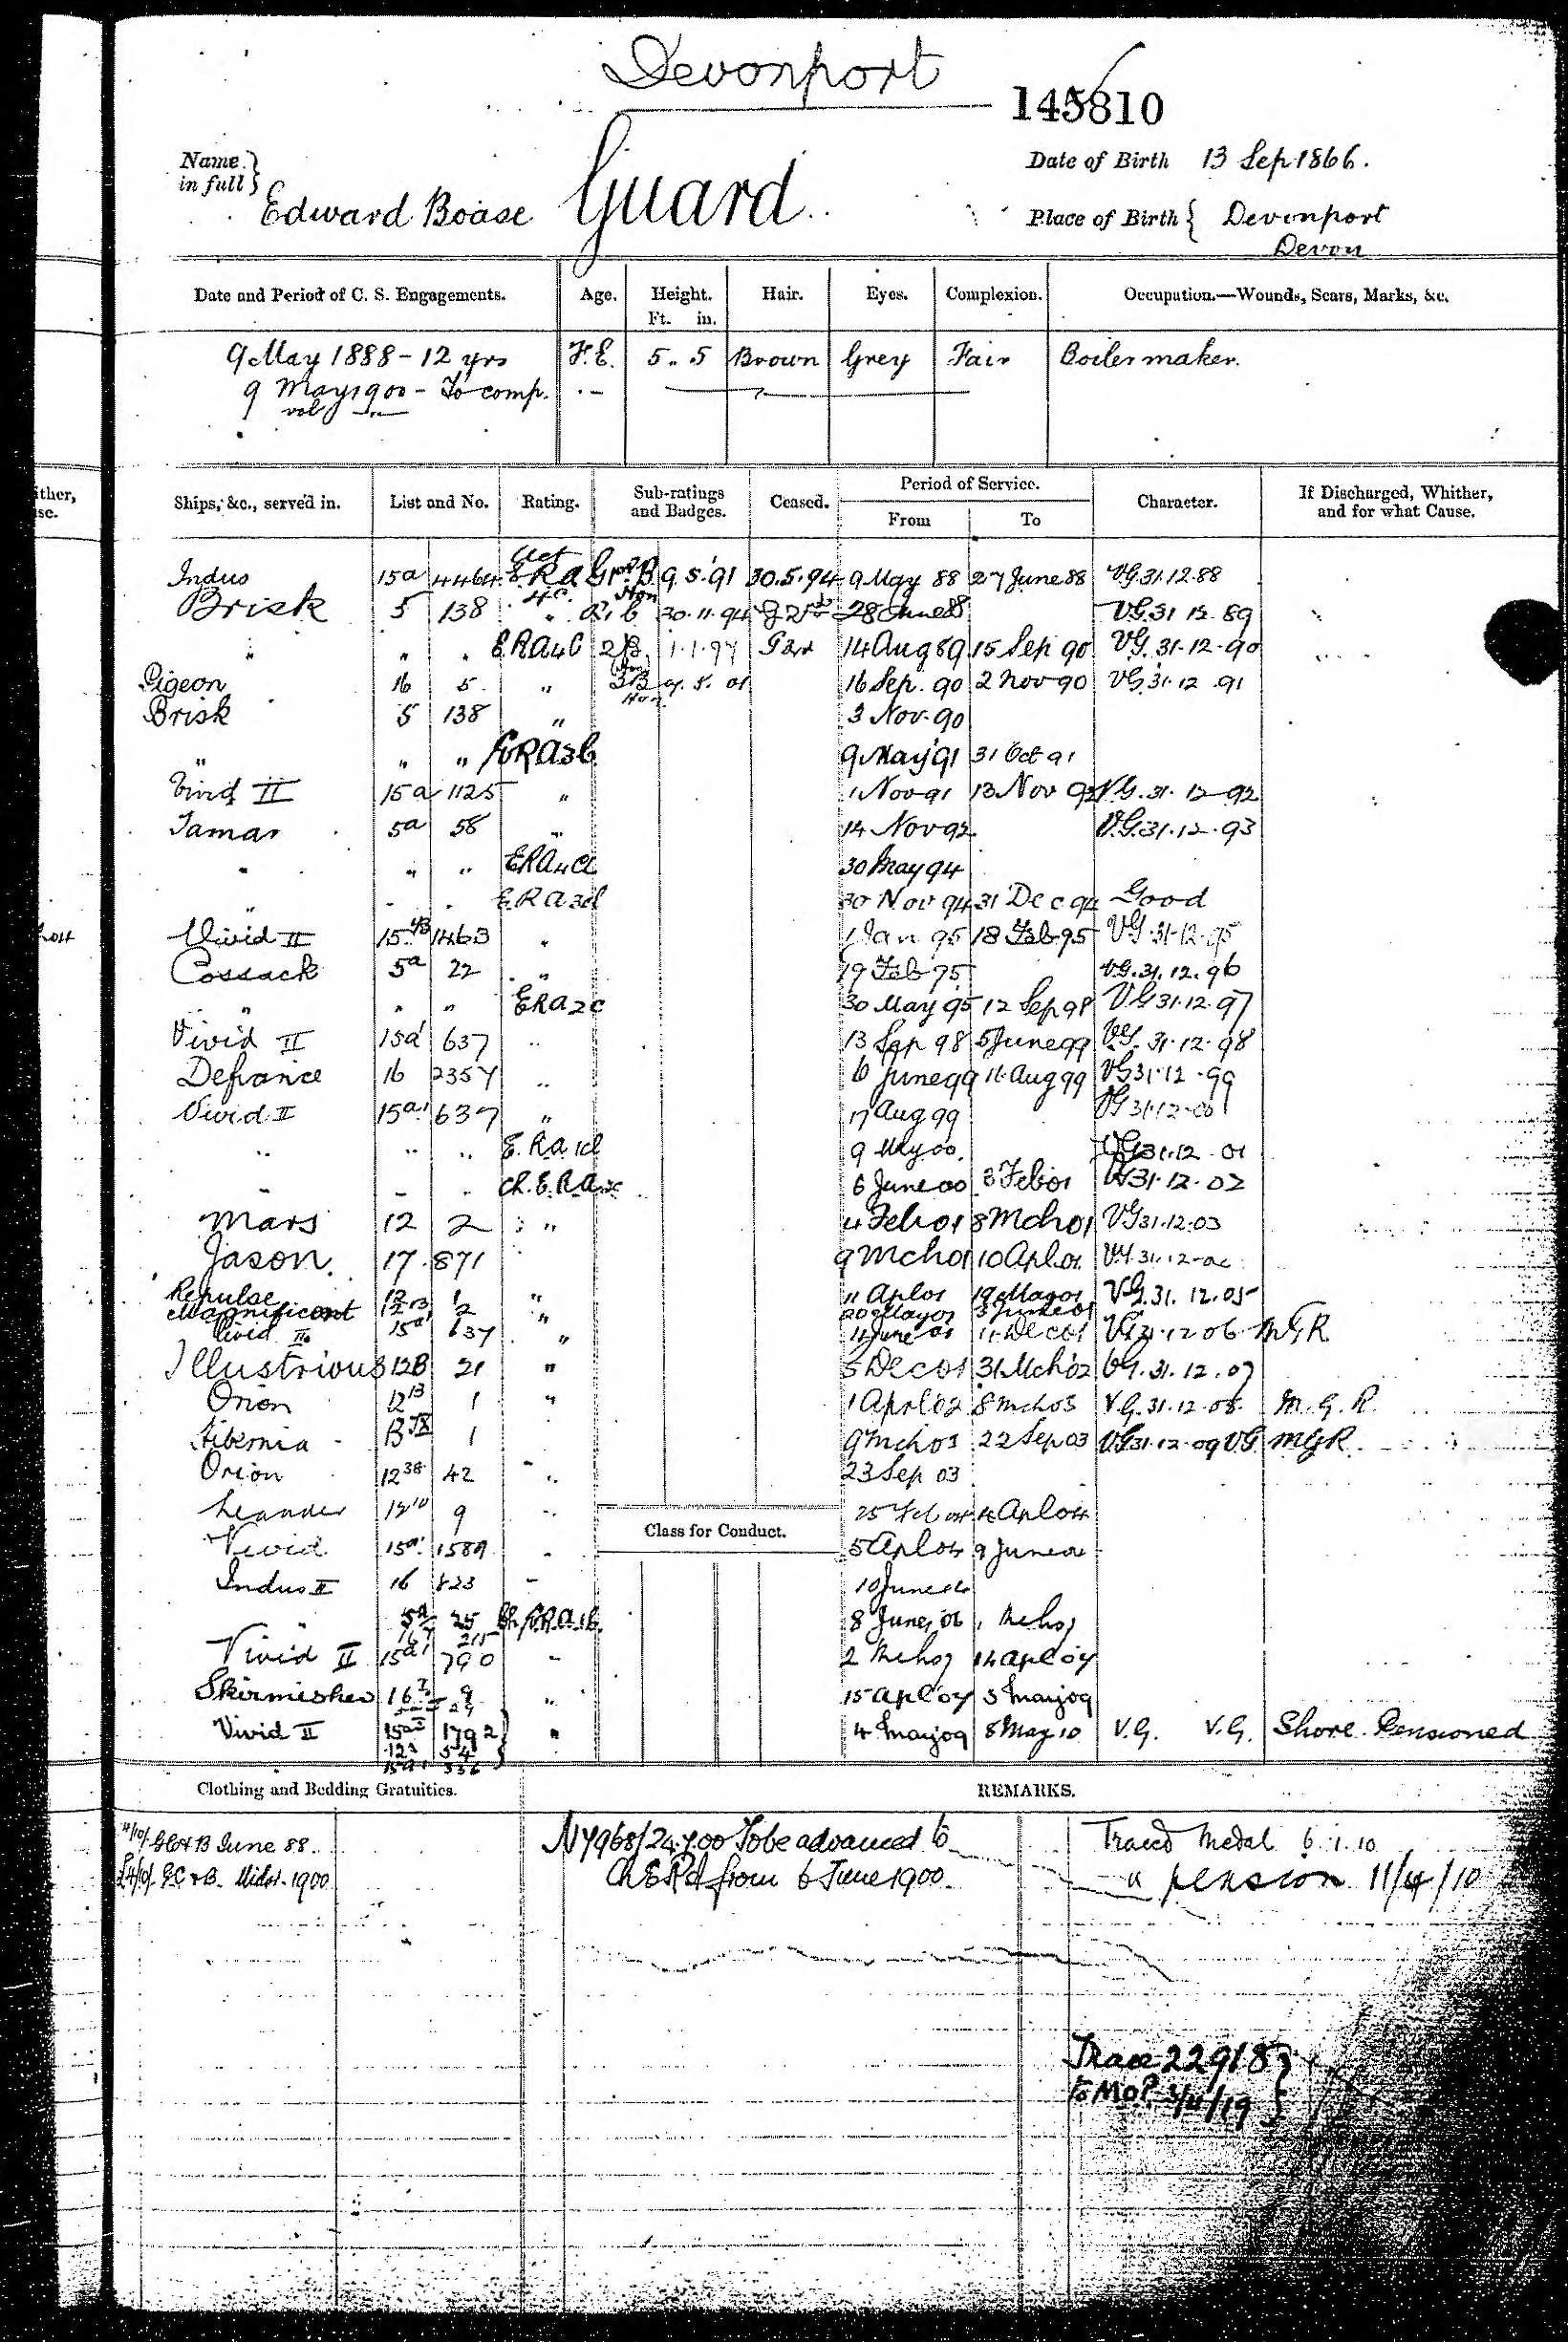 Devonport
145810
Name in full } Edward Boase Guard
Date of Birth 13 Sep 1866.
Place of Birth { Devonport
Devon
Date and Period of C. S. Engagements. Age. Height. Ft. in. Hair. Eyes. Complexion. Occupation.—Wounds, Scars, Marks, &c.
9 May 1888 - 12 yrs F.E. 5.. 5 Brown Grey Fair Boilermaker.
9 May 1900 - To comp.
vol
ither,
se.
Ships, &c., served in. List and No. Rating. Sub-ratings and Badges. Ceased. Period of Service. From To Character. If Discharged, Whither, and for what Cause.
Indus 15a 4464 Act E.R.A 4c. 9.5.91 30.5.94 9 May 88 27 June 88 VG 31.12.88
Brisk 5 138 " 30.11.94 28 June 88 VG 31 12.89
" " " ERA4C 2B. 1.1.97 14 Aug 89 15 Sep 90 VG. 31-12-90
Pigeon 16 5 " 3B 9.5.01 16 Sep. 90 2 Nov 90 VG 31.12.91
Brisk 5 138 " 3 Nov. 90
" " " ERA3C 9 May 91 31 Oct 91
Vivid II 15a 1125 " 1 Nov 91 13 Nov 92 V.G. 31. 12-92
Tamar 5a 58 " 14 Nov 92 V.G. 31.12.93
" " " ERA4Cl 30 May 94
" - . E.R.A 3Cl 30 Nov 94 31 Dec 94 Good
Vivid II 15 1463 " 1 Jan 95 18 Feb 95 VG.31.12.95
Cossack 5a 22 " 19 Feb 95 VG.31.12.96
" " " ERA2C 30 May 95 12 Sep 98 VG 31.12.97
Vivid II 15a 637 " 13 Sep 98 5 June 99 VG. 31.12.98
Defiance 16 2357 " 6 June 99 16 Aug 99 VG 31.12.99
Vivid II 15a 637 " 17 Aug 99 VG 31.12.00
" " " E.R.A 1Cl 9 May 00. VG 31.12.01
" - . Ch.E.R.A 2c 6 June 00 3 Feb 01 VG 31.12.02
Mars 12 2 " 4 Feb 01 8 Mch 01 VG 31.12.03
Jason 17 871 9 Mch 01 10 Apl. 01 VG 31.12.04
Repulse 12 1 " 11 Apl 01 19 May 01 VG.31.12.05
Magnificent 12B 2 " 20 May 01 3 June 01
Vivid II 15a 637 " 4 June 01 4 Dec 01 VG 31.12 06 MGR
Illustrious 12B 21 " 5 Dec 01 31 Mch 02 VG.31.12.07
Orion 12 1 " 1 Apl 02 8 Mch 03 V.G. 31.12.08. M.G.R.
Hibernia 1 9 Mch 03 22 Sep 03 VG 31.12.09 VG MGR
Orion 12 42 " 23 Sep 03
Leander 12 9 25 Feb 04 4 Apl 04
Class for Conduct.
Vivid 15a 1589 5 Apl 04 9 June 04
Indus II 16 823 10 June 04
" 25 Ch.E.R.A.1C. 8 June, 06 1 Mch 07
Vivid II 15a 790 2 Mch 07 14 Apl 07
Skirmisher 16 9 " 15 Apl 07 3 May 09
Vivid II 15a 1792 " 4 May 09 8 May 10 V.G. V.G. Shore. Pensioned
12a 54
15a 536
Clothing and Bedding Gratuities. REMARKS.
GC&B June 88.
£4/10/. G.C & B. 1900
N7968/24.7.00 To be advanced to
Ch E R A from 6 June 1900.
Traced Medal 6.1.10
" pension 11/4/10
Trace 22918
to MoP. 3/4/19 }